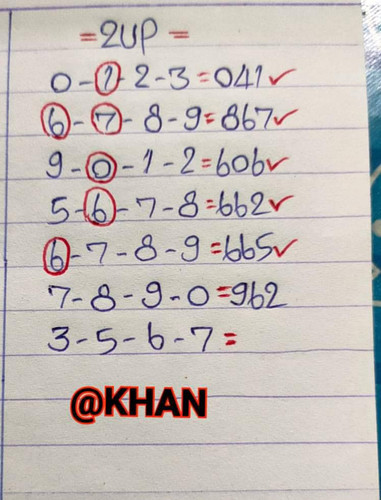 =2UP=
0-1-2-3=041✓
6-7-8-9=867✓
9-0-1-2=606✓
5-6-7-8=662✓
6-7-8-9=665✓
7-8-9-0=962
3-5-6-7=
@KHAN